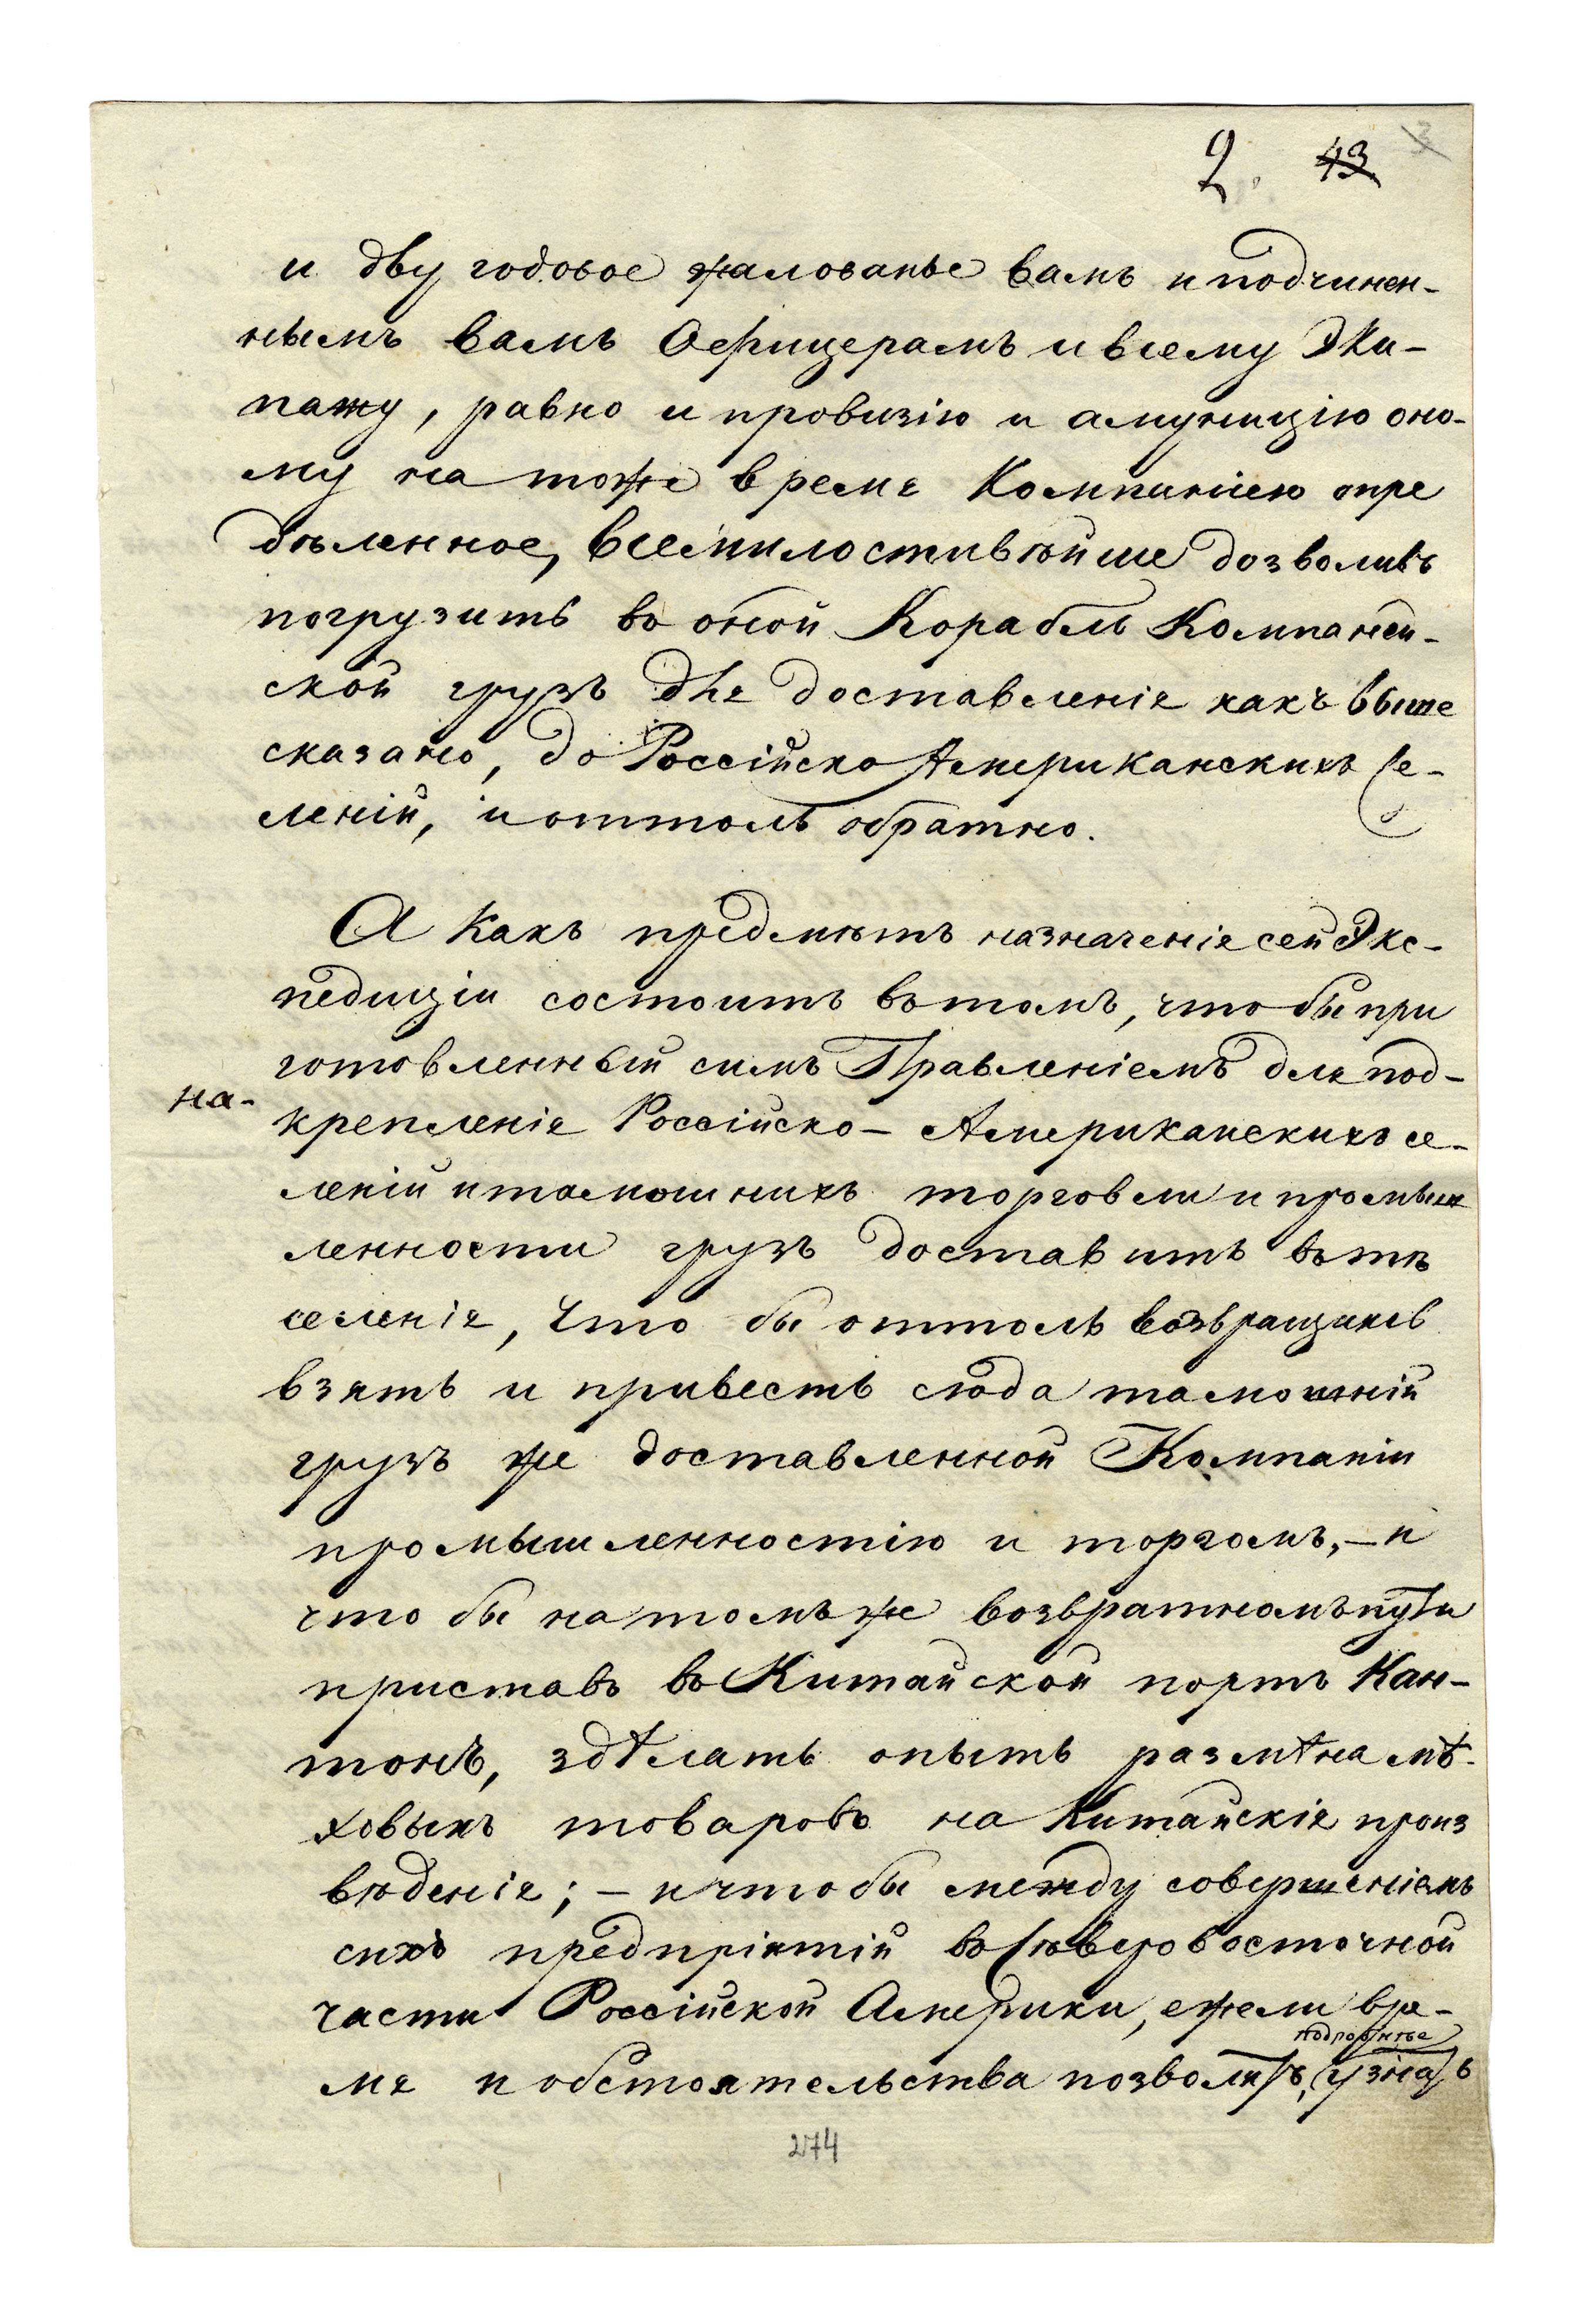 2. 43 3
и дву годовое жалованье вамъ и подчинен-
нымъ вамъ Офицерамъ и всему Эки-
пажу, равно и провизію и амуницію оно-
му на тоже время Компаніею опре
дѣленное, всемилостивѣйше дозволивъ
погрузить во оной Корабль Компаней-
ской грузъ для доставленія какъ выше
сказано, до Россійско Американскихъ Се-
леній, и оттоль обратно.
А какъ предмѣтъ назначенія сей Экс-
педиціи состоитъ въ томъ, что бы при
готовленный симъ Правленіемъ для под-
на-
крепленія Россійско- Американскихъ се-
леній и тамошнихъ торговли и промыш
ленности грузъ доставить въ тѣ
селенія, что бы оттоль возвращаясь
взять и привесть сюда тамошній
грузъ же доставленной Компаніи
промышленностію и торгомъ, - и
что бы на томъ же возвратномъ пути
приставъ въ Китайской портъ Кан-
тонъ, здѣлать опытъ размѣна мѣ-
ховыхъ товаровъ на Китайскія произ
вѣденія; - и что бы между совершеніемъ
сихъ предпріятій въ Сѣверовосточной
части Россійской Америки, ежели вре-
подробнѣе
мя и обстоятельства позволятъ, узнать
274